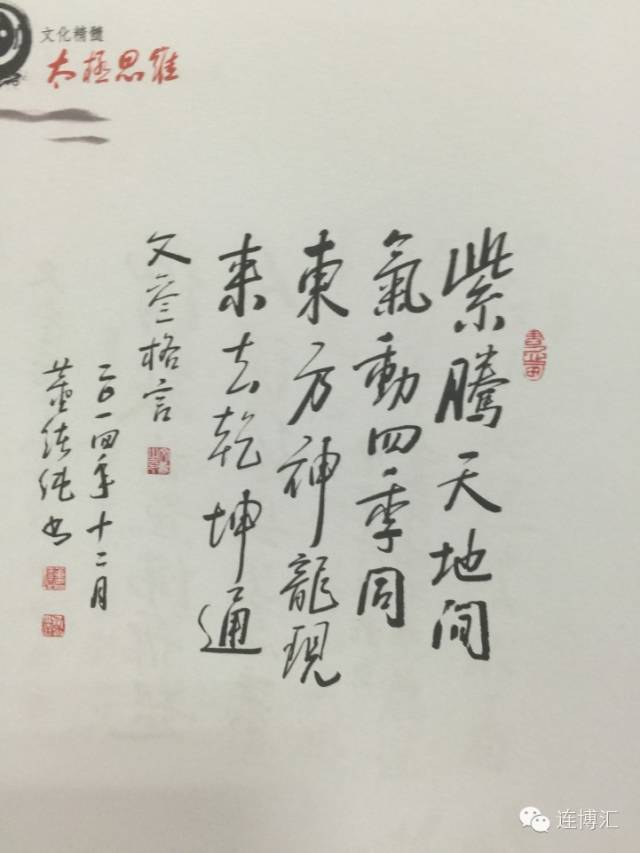 文化精髓
太极思维
紫騰天地间
氣動四季同
東方神龍現
来去乾坤通
文叁格言
二〇一四年十二月
董继纯书
连博汇